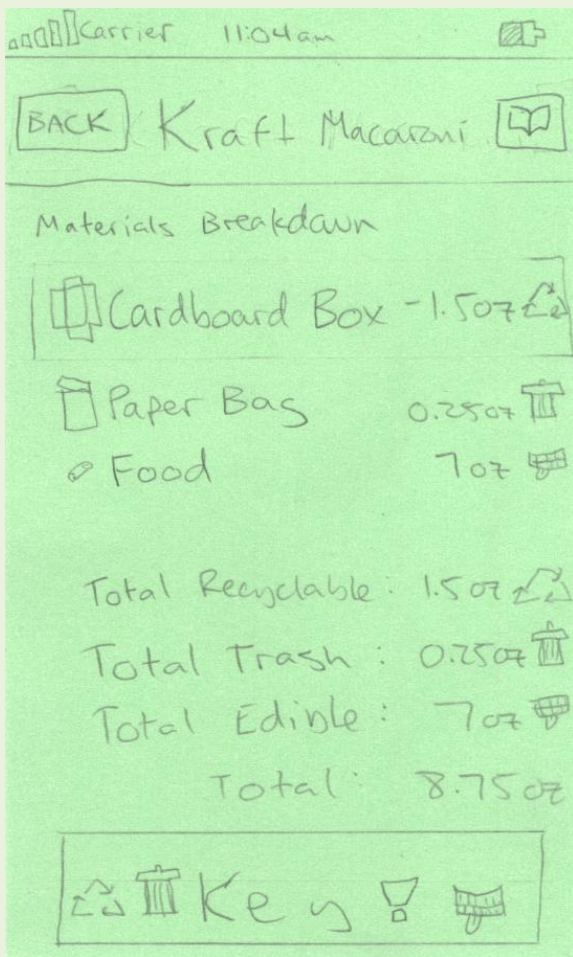 Carrier 11:04am
BACK Kraft Macaroni
Materials Breakdown
Cardboard Box - 1.5oz
Paper Bag 0.25oz
Food 7oz
Total Recyclable: 1.5oz
Total Trash: 0.25oz
Total Edible: 7oz
Total: 8.75oz
Key